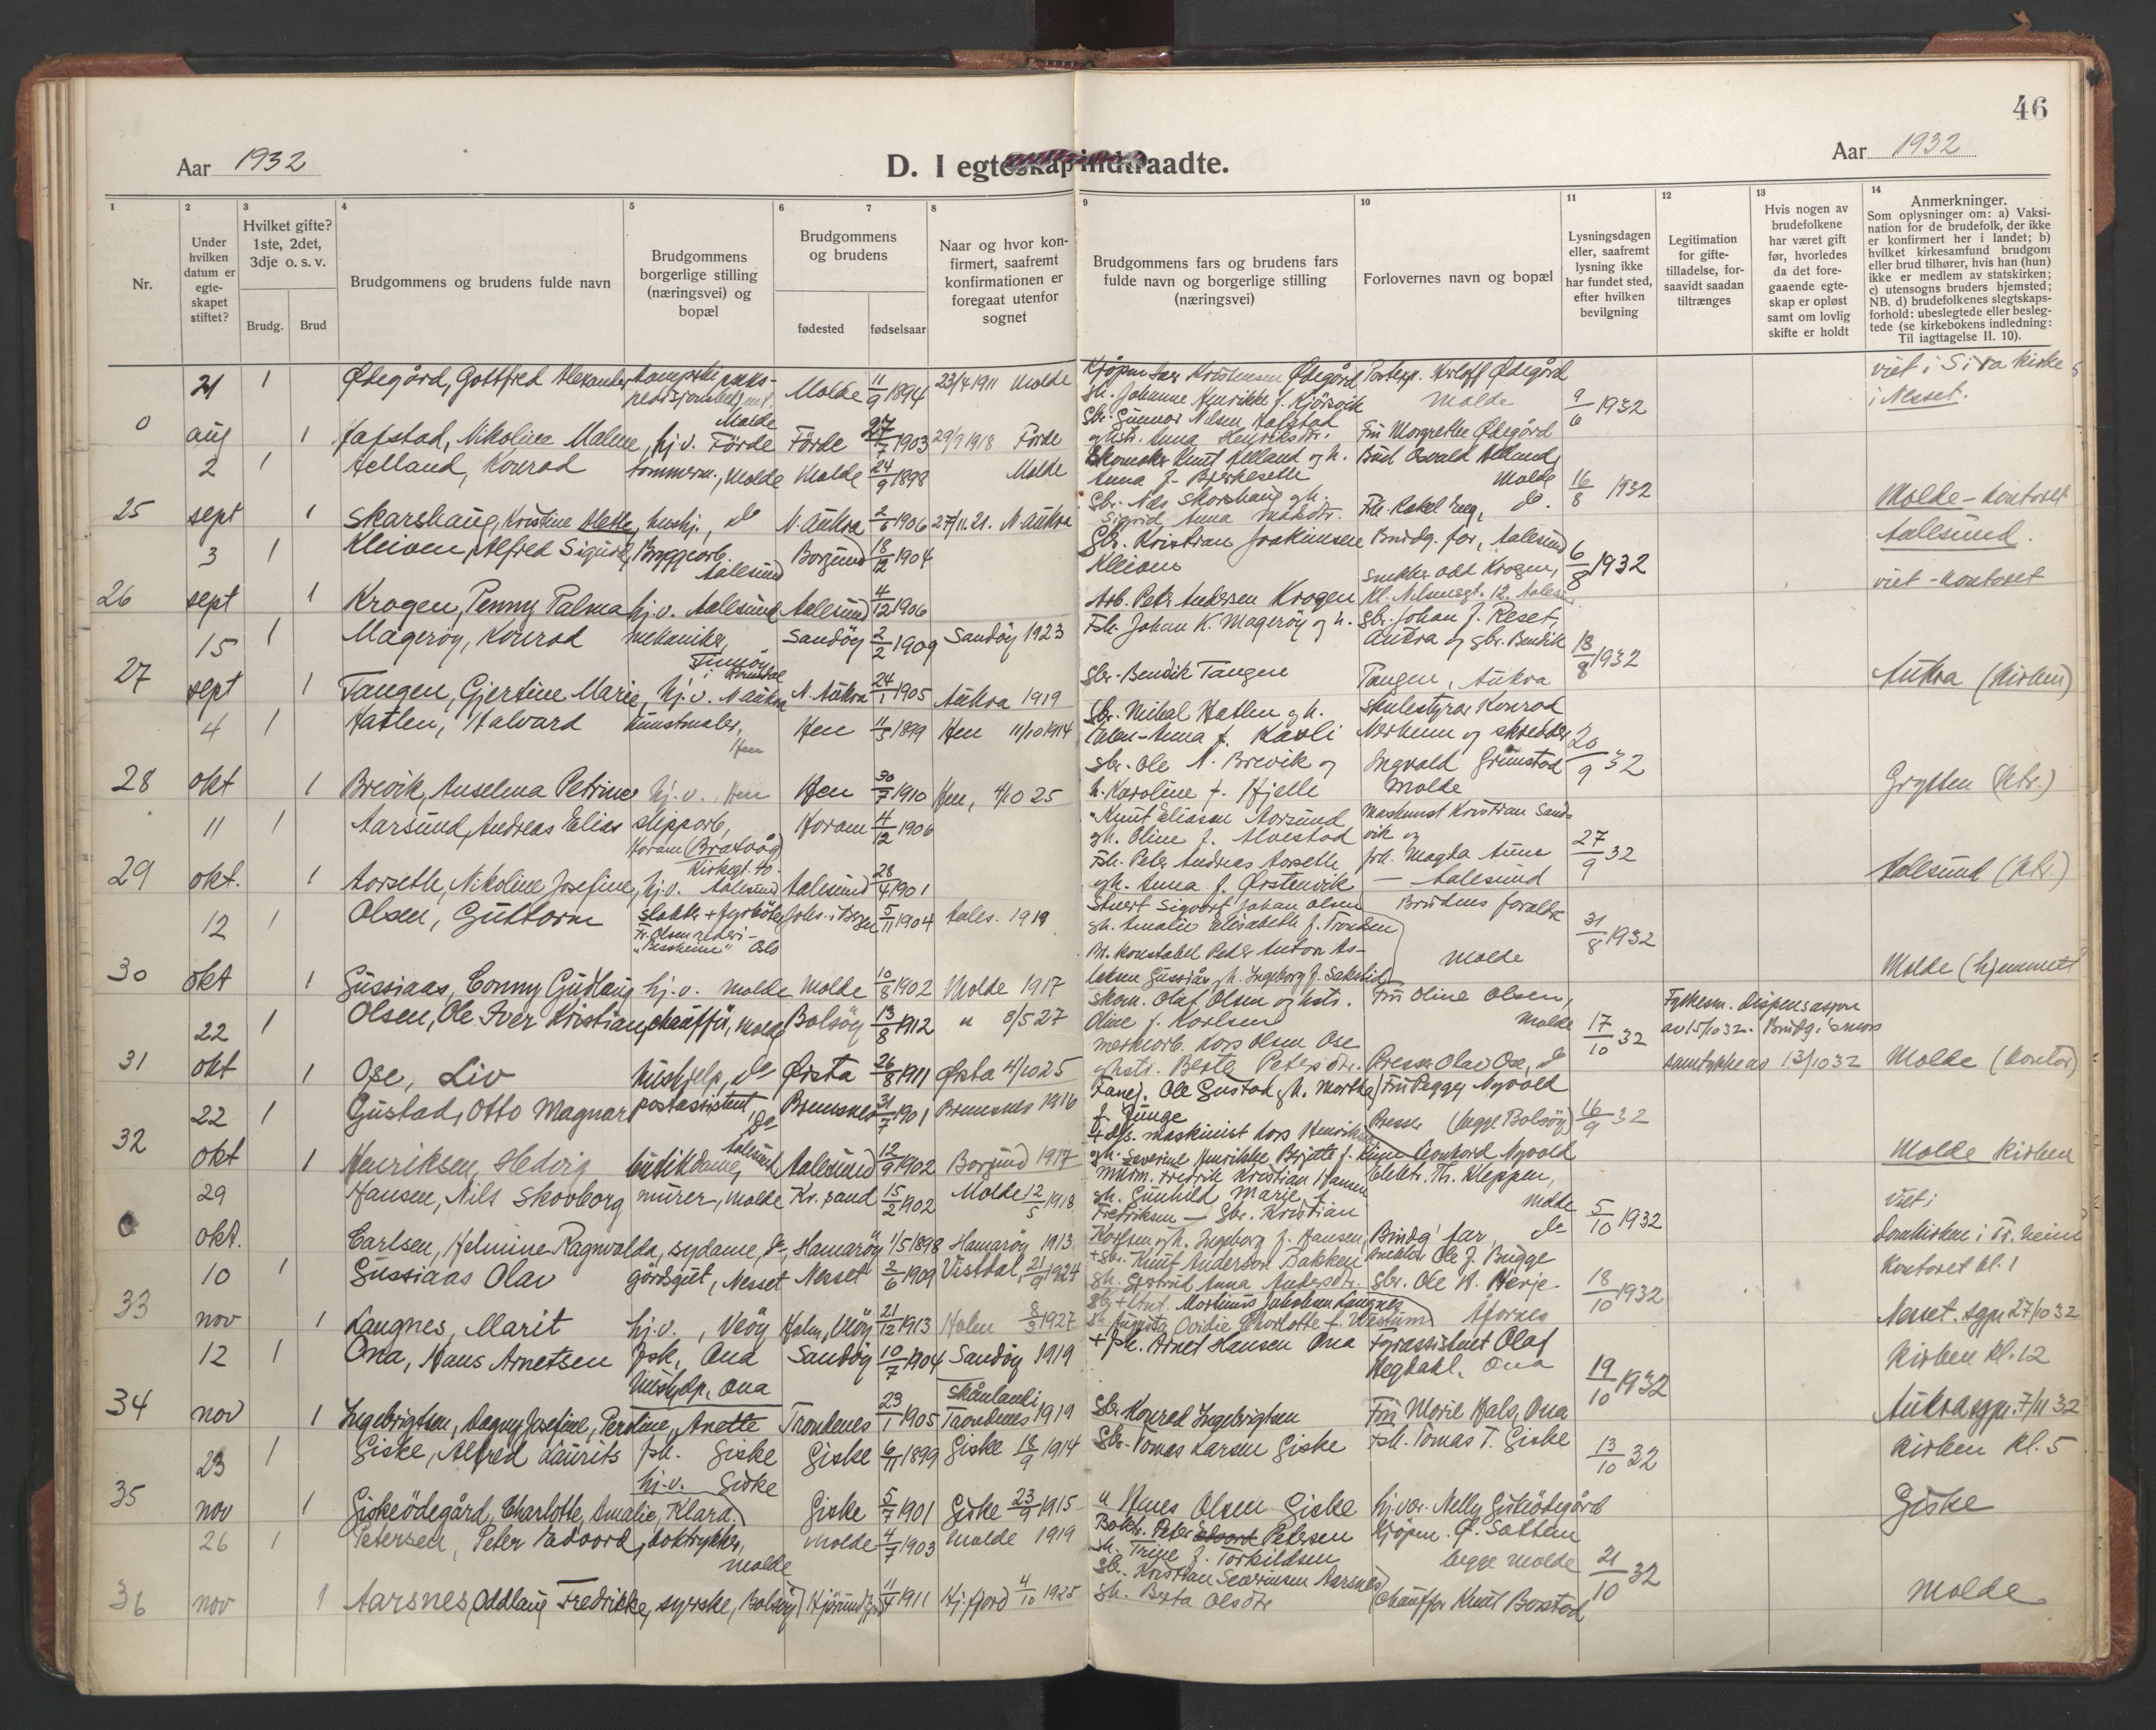 46
Aar 1932
D. I egteskap indtraadte.
Aar 1932
1 2 3 4 5 6 7 8 9 10 11 12 13 14
Nr.
Under hvilken datum er egte-skapet stiftet?
Hvilket gifte? 1ste, 2det, 3dje o. s. v.
Brudg. Brud
Brudgommens og brudens fulde navn
Brudgommens borgerlige stilling (næringsvei) og bopæl
Brudgommens og brudens
fødested fødselsaar
Naar og hvor kon-firmert, saafremt konfirmationen er foregaat utenfor sognet
Brudgommens fars og brudens fars fulde navn og borgerlige stilling (næringsvei)
Forlovernes navn og bopæl
Lysningsdagen eller, saafremt lysning ikke har fundet sted, efter hvilken bevilgning
Legitimation for gifte-tilladelse, for-saavidt saadan tiltrænges
Hvis nogen av brudefolkene har været gift før, hvorledes da det fore-gaaende egte-skap er opløst samt om lovlig skifte er holdt
Anmerkninger.
Som oplysninger om: a) Vaksi-nation for de brudefolk, der ikke er konfirmert her i landet; b) hvilket kirkesamfund brudgom eller brud tilhører, hvis han (hun) ikke er medlem av statskirken; c) utensogns bruders hjemsted; NB. d) brudefolkenes slegtskaps-forhold: ubeslegtede eller besleg-tede (se kirkebokens indledning: Til iagttagelse II. 10).
21 1 Ødegård, Gottfred Alexander Molde 11/9 1894 23/4 1911 Molde Ødegård Molde 9/6 1932 viet i Sira kirke i Nesset.
0 aug 1 Hafstad, Nikoline Malene, hj.v. Förde Förde 27/7 1903 29/9 1918 Förde Gbr. Gunnar Nilsen Hafstad Fru Margrethe Ødegård
2 1 Helland, Konrad tømmerm., Molde Molde 24/9 1898 Molde Skomaker Knut Helland og h. Anna f. Bjerkeseth Molde 16/8 1932
25 sept 1 Skarshaug, Kristine Mette, hushj., do N. Aukra 2/5 1906 27/11.21. N. Aukra Gbr. Nils Skarshaug gh. Sigrid Anna do. Molde-kontoret
3 1 Kleiven, Alfred Sigurd, Bryggearb. Aalesund Borgund 18/12 1904 Gbr. Kristian Joakimsen Kleiven Brudg. far, Aalesund 6/8 1932 Aalesund.
26 sept 1 Krogen, Penny Palma hj.v. Aalesund Aalesund 4/12 1906 Arb. Peter Andersen Krogen Snekker Odd Krogen, viet - kontoret
15 1 Magerøy, Konrad mekaniker, Finnöy i Romsdal Sandöy 2/2 1909 Sandöy 1923 Fsk. Johan K. Magerøy og h. Gbr. Johan J. Reset, Aukra og gbr. Bendik 18/8 1932
27 sept 1 Tangen, Gjertine Marie, hj.v. N. Aukra N. Aukra 24/1 1905 Aukra 1919 Gbr. Bendik Tangen Tangen, Aukra Aukra (kirken)
4 1 Hatlen, Halvard kunstmaler, Hen Hen 11/5 1899 Hen 11/10 1914 Gbr. Mikal Hatlen gh. Anna f. Kavli Skulestyrar Konrad Nerheim og skredder 20/9 32
28 okt 1 Brevik, Anselma Petrine hj.v. Hen Hen 30/7 1910 Hen, 4/10 25 Gbr. Ole A. Brevik og h. Karoline f. Hjelle Ingvald Grimstad Molde Grytten (ktr.)
11 1 Aarsund, Andreas Elias skipparb, Haram (Brattvåg) Haram 11/12 1906 Knut Eliassen Aarsund gh. Oline f. Alvestad Maskinist Kristian Sandvik og 27/9 32
29 okt. 1 Aarseth, Nikoline Josefine, hj.v. Aalesund Kirkegt. 40. Aalesund 28/4 1901 Fsk. Peter Andreas Aarseth gh. Anna f. Ørstenvik frk. Magda Aune — Aalesund Aalesund (ktr.)
12 1 Olsen, Guttorm Fr. Olsens rederi - "Bessheim" Oslo 5/11 1904 Aales. 1919 Stuert Sigvart Johan Olsen gh. Amalie Elisabeth f. Brudens foreldre 31/8 1932
30 okt 1 Gussiaas, Conny Gudlaug hj.v. Molde Molde 10/8 1902 Molde 1917 konstabel Peder Anton Gussiås gh. Ingeborg f. Molde Molde (hjemmet)
22 1 Olsen, Ole Iver Kristian, chauffør, Molde Bolsöy 13/8 1912 " 8/5 27 Skom. Olaf Olsen og hstr. Oline f. Karlsen Fru Oline Olsen, Molde 17/10 32 Fylkesm. dispensasjon av 15/10 32. Brudg.
31 okt 1 Ose, Liv hushjelp, do Ørsta 26/8 1911 Ørsta 4/10 25 Lars Olsen Ose ghstr. Berte Petersdtr. Presser Olav Ose, do samtykke av 13/10 32 Molde (kontor)
22 1 Gustad, Otto Magnar postassistent, do Bremsnes 31/7 1901 Bremsnes 1916 Ole Gustad gh. Martha f. Junge Fru Peggy Nyvold 16/9 32
32 okt 1 Henriksen, Hedvig butikdame, Aalesund Aalesund 12/9 1902 Borgund 1917 maskinist Lars Henriksen Presser (begge Bolsöy) Leonhard Nyvold Molde kirken
29 Hansen, Nils Skovborg murer, Molde Kr.sand 15/2 1902 Molde 12/5 1918 Fredrik Kristian Hansen gh. Gunhild Marie f. Fredriksen Elektr. Th. Kleppen, Molde 5/10 1932 Viet i
0 okt. Carlsen, Helmine Ragnvalda, sydame, do, Hamarøy 1/5 1898 Hamarøy 1913 Gbr. Kristian Karlsen gh. Ingeborg f. Hansen, Brudg. far, do Domkirken i Tr.heim
10 1 Gussiaas Olav gårdsgut, Nesset Nesset 2/6 1909 Vistdal, 21/9 1924 + Gbr. Knut Anderson Bakken gh. Gjertrud Anna Andersdtr. Ole J. Bugge Gbr. Ole K. Herje 18/10 1932 Kontoret kl. 1
33 nov 1 Langnes, Marit hj.v., Veöy Holm, Veöy 21/12 1913 Holm 8/9 1927 Charlotte f. Westum Åfarnes Nesset. sgpr. 27/10 32
12 1 Ona, Hans Arnetsen fsk, Ona Sandöy 10/7 1904 Sandöy 1919 + fsk. Arnet Hansen Ona Fyrassistent Olaf Hegdahl, Ona 19/10 1932 Kirken kl. 12
34 nov 1 Ingebrigtsen, Dagny Josefine, Peroline, Anette hushjelp, Ona Trondenes 23/1 1905 Skånland i Trondenes 1919 Gbr. Konrad Ingebrigtsen Fru Marie Hals, Ona Aukra sgpr. 7/11 32
23 1 Giske, Alfred Laurits fsk. Giske Giske 6/11 1899 Giske 18/9 1914 Gbr. Tomas Larsen Giske Fsk. Tomas T. Giske 13/10 32 Kirken kl. 5
35 nov 1 Giskeödegård, Charlotte, Amalie, Klara. hj.v. Giske Giske 5/7 1901 Giske 23/9 1915 " Hans Olsen Giske hj.vær. Nelly Giskeödegård Giske
26 1 Petersen, Peter Edvard, boktrykker, Molde Molde 4/7 1903 Molde 1919 Boktr. Peter Edvard Petersen gh. Trine f. Torkildsen Kjøpm. begge Molde 21/10 32
36 nov 1 Aarsnes, Oddlaug Fredrikke, syerske, Bolsöy Hjörundfjord 11/4 1911 Hj.fjord 4/10 1925 Gbr. Kristian Severinsen Aarsnes gh. Berta Olsdtr Chauffør Knut Borstad Molde